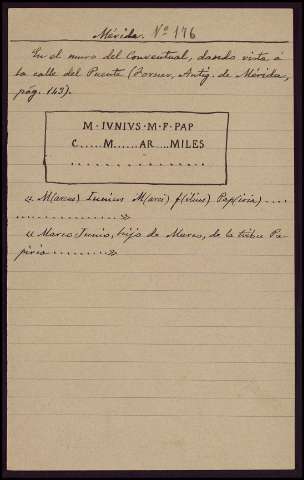 Mérida. Nº 176
En el muro del Conventual, dando vista á
la calle del Puente (Forner, Antig. de Mérida,
pág. 143).
M · IVNIVS · M · F · PAP
C......M......AR....MILES
. . . . . . . . . . . . . . .
« M(arcus) Iunius M(arci) f(ilius) Pap(iria) ....
....................... »
« Marco Junio, hijo de Marco, de la tribu Pa-
piria ............ »